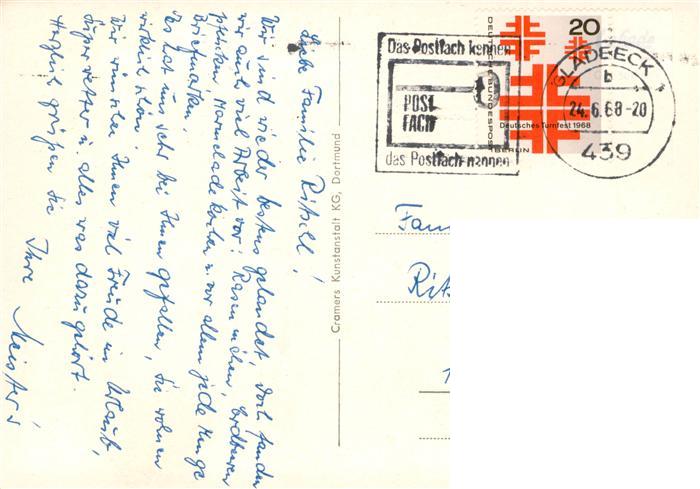 Liebe Familie Ritsell!
Wir sind wieder bestens gelandet, doch fanden
wir auch viel Arbeit vor: Rasen mähen, Erdbeeren
pflücken Marmelade kochen u. vor allem jede Menge
Briefmarken.
Es hat uns sehr bei Ihnen gefallen, Sie wohnen
wirklich schön.
Wir wünschen Ihnen viel Freude im Urlaub,
Superwetter u. alles was dazugehört.
Herzlich grüßen Sie
Ihre Meister's
Cramers Kunstanstalt KG, Dortmund
Das Postfach kennen
POST
FACH
das Postfach nennen
20
DEUTSCHE BUNDESPOST
Deutsches Turnfest 1968
BERLIN
GLADBECK
b
24.6.68-20
439
Fam
Rits